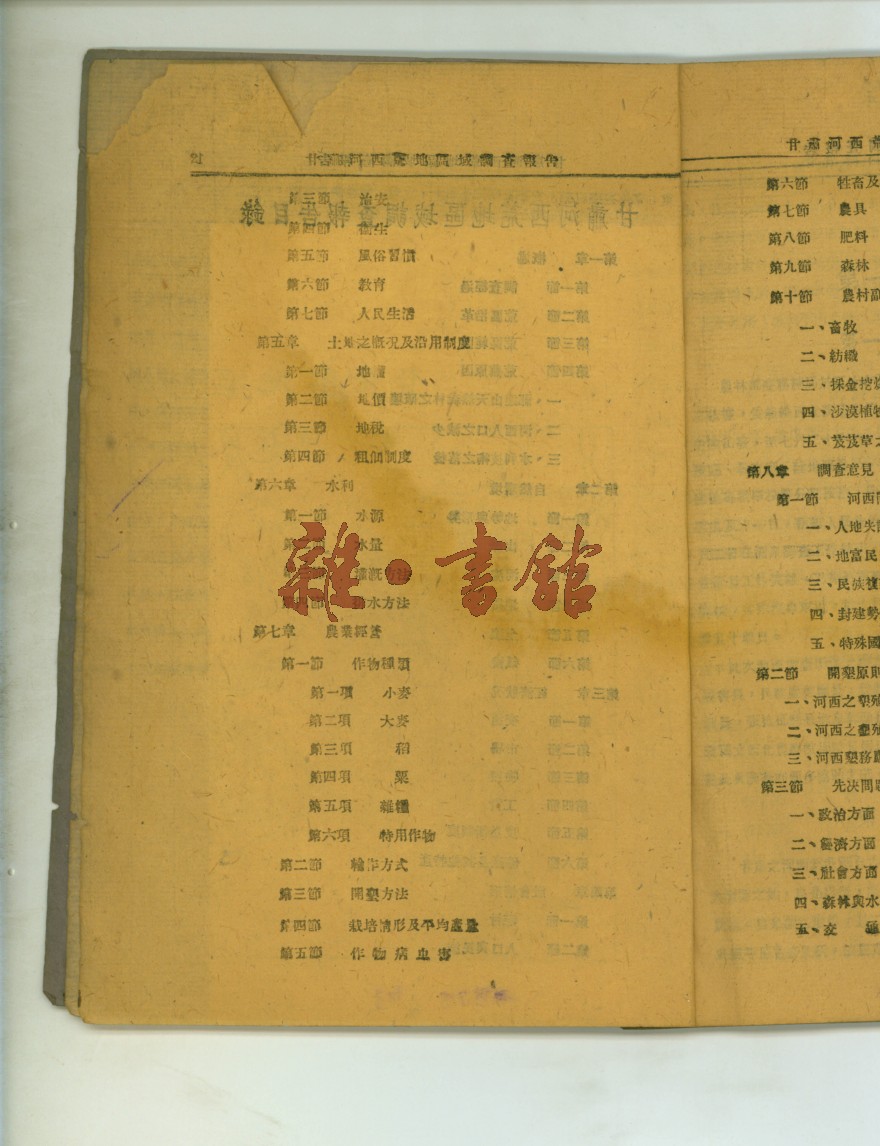 甘肅河西荒地區域調查報告
第三節 地安
第四節 衛生
第五節 風俗習慣
第六節 教育
第七節 人民生活
第五章 土地之概況及沿用制度
第一節 地
第二節 地價
第三節 地稅
第四節 租佃制度
第六章 水利
第一節 水源
水量
灌漑方法
水方法
第七章 農業經營
第一節 作物種類
第一項 小麥
第二項 大麥
第三項 稻
第四項 粟
第五項 雜糧
第六項 特用作物
第二節 輪作方式
第三節 開墾方法
第四節 栽培情形及平均產量
第五節 作物病虫害
雜·書館
甘肅河西荒
第六節 牲畜及
第七節 農具
第八節 肥料
第九節 森林
第十節 農村副
一、畜牧
二、紡織
三、採金挖煤
四、沙漠植物
五、笈芨草之
第八章 調查意見
第一節 河西開
一、人地失調
二、地富民
三、民族複
四、封建勢
五、特殊國
第二節 開墾原則
一、河西之墾殖
二、河西之墾殖
三、河西墾務
第三節 先决問題
一、政治方面
二、經濟方面
三、社會方面
四、森林與水
五、交 通